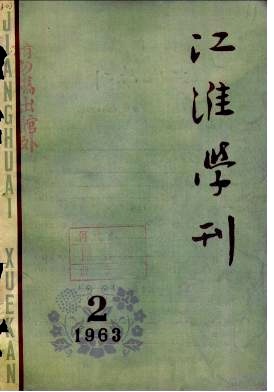 江淮学刊
2
1963
JIANGHUAI XUEKAN